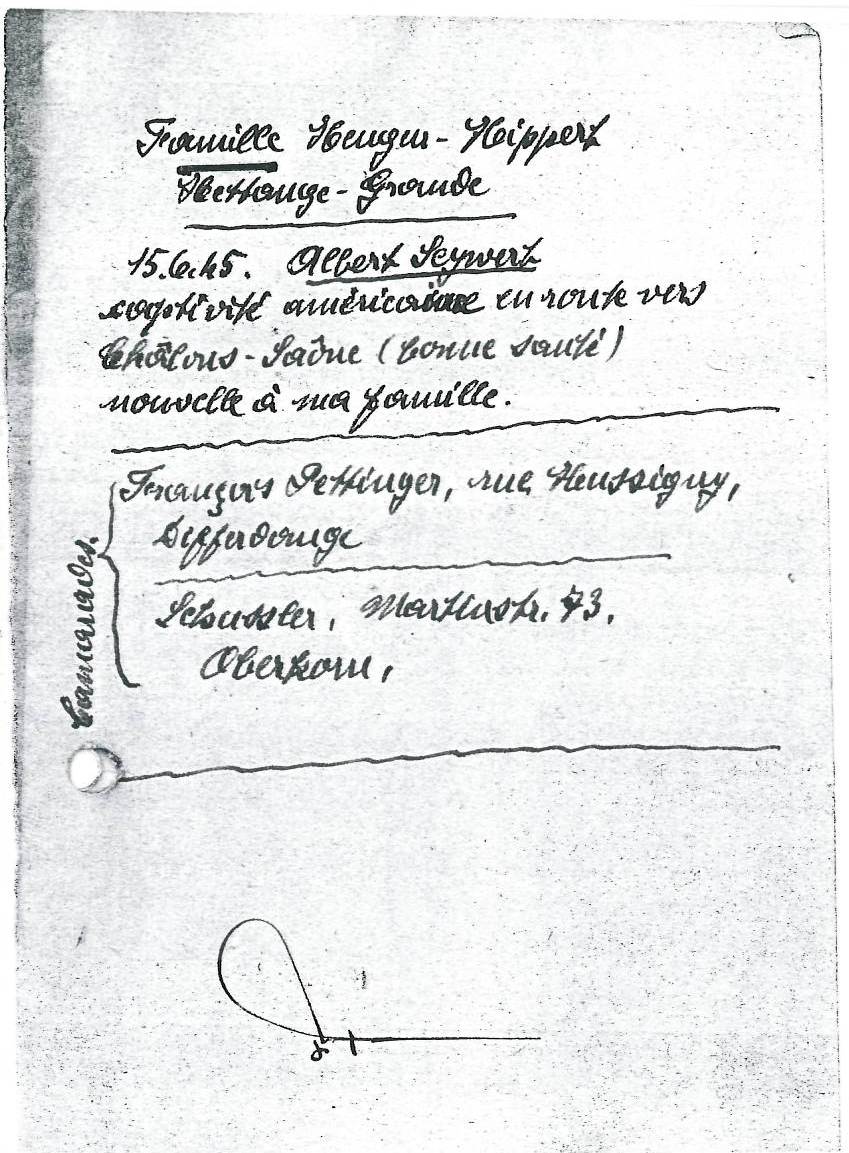 Famille Wenger - Hippert
Hettange - Grande
15.6.45. Albert Seywert
captivité américaine en route vers
Châlons - Saône (bonne santé)
nouvelle à ma famille.
Camarades.
François Pettinger, rue Hussigny,
Differdange
Schussler, Martinstr. 73,
Oberkorn,